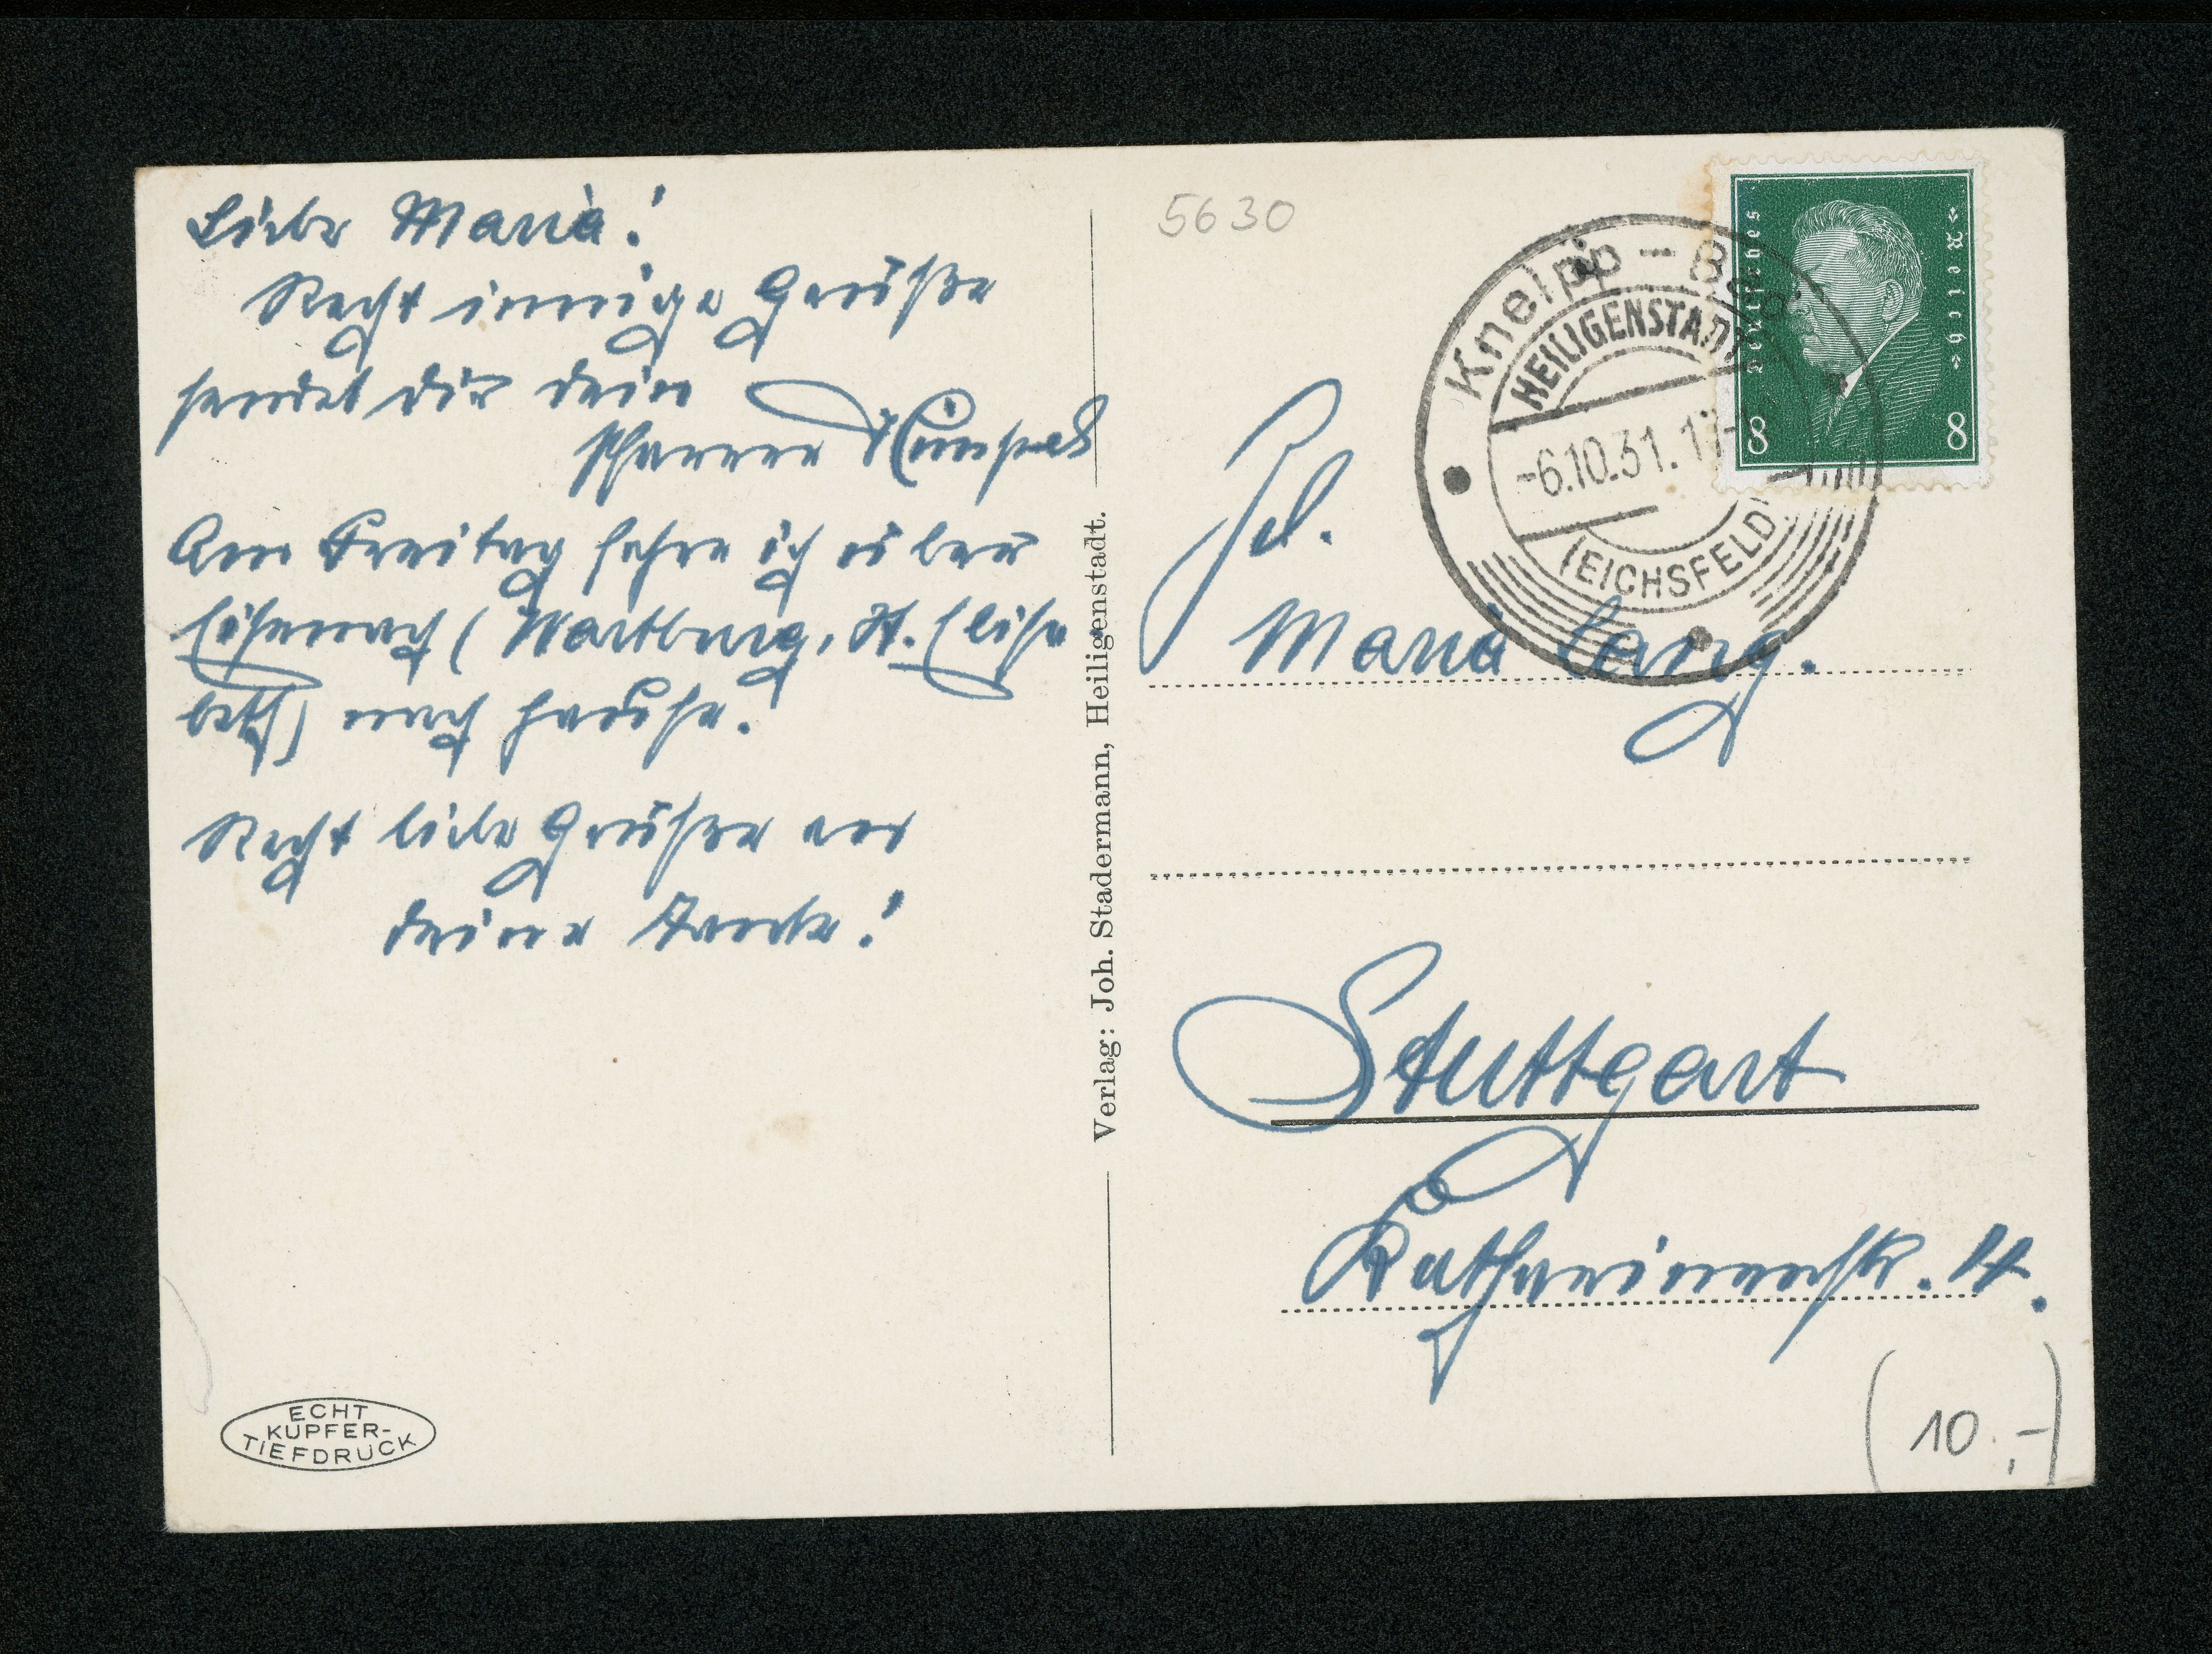 Liebe Maria!
Recht innige Grüße
sendet dir dein
Pfarrer
Am Freitag fahre ich über
Eisenach (Wartburg, St. Elisa
beth) nach Hause.
Recht liebe Grüße an
deine Tante!
ECHT
KUPFER-
TIEFDRUCK
Verlag: Joh. Stadermann, Heiligenstadt.
5630
Kneipp-Bad
HEILIGENSTADT
-6.10.31.
(EICHSFELD)
Deutsches Reich
8 8
Frl.
Maria Lang.
Stuttgart
Katharinenstr. 4.
(10.-)